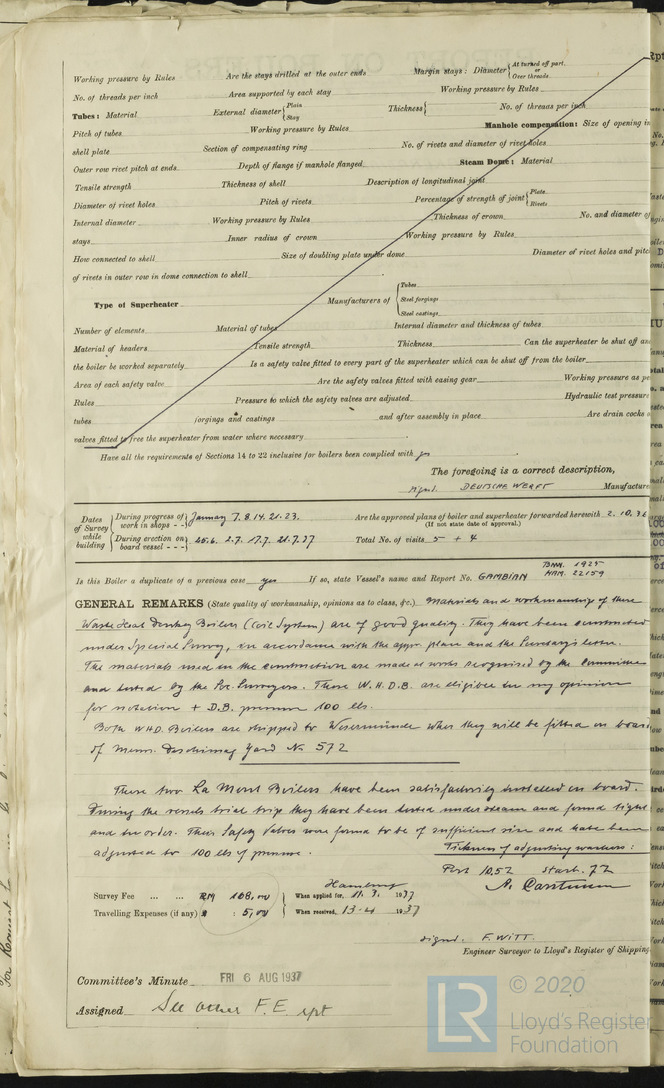 Working pressure by Rules Are the stays drilled at the outer ends Margin stays: Diameter { At turned off part. or Over threads.
No. of threads per inch Area supported by each stay Working pressure by Rules
Tubes: Material External diameter { Plain Stay Thickness { No. of threads per inch
Pitch of tubes Working pressure by Rules Manhole compensation: Size of opening in
shell plate Section of compensating ring No. of rivets and diameter of rivet holes
Outer row rivet pitch at ends Depth of flange if manhole flanged Steam Dome: Material
Tensile strength Thickness of shell Description of longitudinal joint
Diameter of rivet holes Pitch of rivets Percentage of strength of joint { Plate Rivets
Internal diameter Working pressure by Rules Thickness of crown No. and diameter of
stays Inner radius of crown Working pressure by Rules
How connected to shell Size of doubling plate under dome Diameter of rivet holes and pitch
of rivets in outer row in dome connection to shell
Type of Superheater Manufacturers of { Tubes Steel forgings Steel castings
Number of elements Material of tubes Internal diameter and thickness of tubes
Material of headers Tensile strength Thickness Can the superheater be shut off and
the boiler be worked separately Is a safety valve fitted to every part of the superheater which can be shut off from the boiler
Area of each safety valve Are the safety valves fitted with easing gear Working pressure as per
Rules Pressure to which the safety valves are adjusted Hydraulic test pressure
tubes forgings and castings and after assembly in place Are drain cocks o
valves fitted to free the superheater from water where necessary
Have all the requirements of Sections 14 to 22 inclusive for boilers been complied with yes
The foregoing is a correct description,
signd. DEUTSCHE WERFT Manufacture
Dates of Survey while building { During progress of work in shops - - } January 7. 8. 14. 21. 23. Are the approved plans of boiler and superheater forwarded herewith 2. 10. 36
(If not state date of approval.)
{ During erection on board vessel - - - } 25.6. 2.7. 17.7. 21.7.37 Total No. of visits 5 + 4
Is this Boiler a duplicate of a previous case yes If so, state Vessel's name and Report No. GAMBIAN BMN. 1925 HAM. 22159
GENERAL REMARKS (State quality of workmanship, opinions as to class, &c.) Materials and workmanship of these
Waste Heat Donkey Boilers (Coil System) are of good quality. They have been constructed
under Special Survey, in accordance with the appr. plans and the Secretary's letter.
The materials used in the construction are made at works recognised by the Committee
and tested by the Soc. Surveyors. These W.H.D.B. are eligible in my opinion
for notation + D.B. pressure 100 lbs.
Both WHD. Boilers are shipped to Wesermünde where they will be fitted on board
of Messrs. Deschimag Yard No 572
These two La Mont Boilers have been satisfactorily installed on board.
During the vessels trial trip they have been tested under steam and found tight
and in order. Their Safety Valves were found to be of sufficient size and have been
adjusted to 100 lbs of pressure. Tickness of adjusting washers:
Port 10,52 Starb. 7,2
Survey Fee ... ... RM 168,00 When applied for, Hamburg 11. 3. 1937
Travelling Expenses (if any) : 5,00 When received, 13.4 1937
signd. F. WITT.
Engineer Surveyor to Lloyd's Register of Shipping
Committee's Minute FRI 6 AUG 1937
Assigned See other F.E. rpt
LR © 2020
Lloyd's Register
Foundation